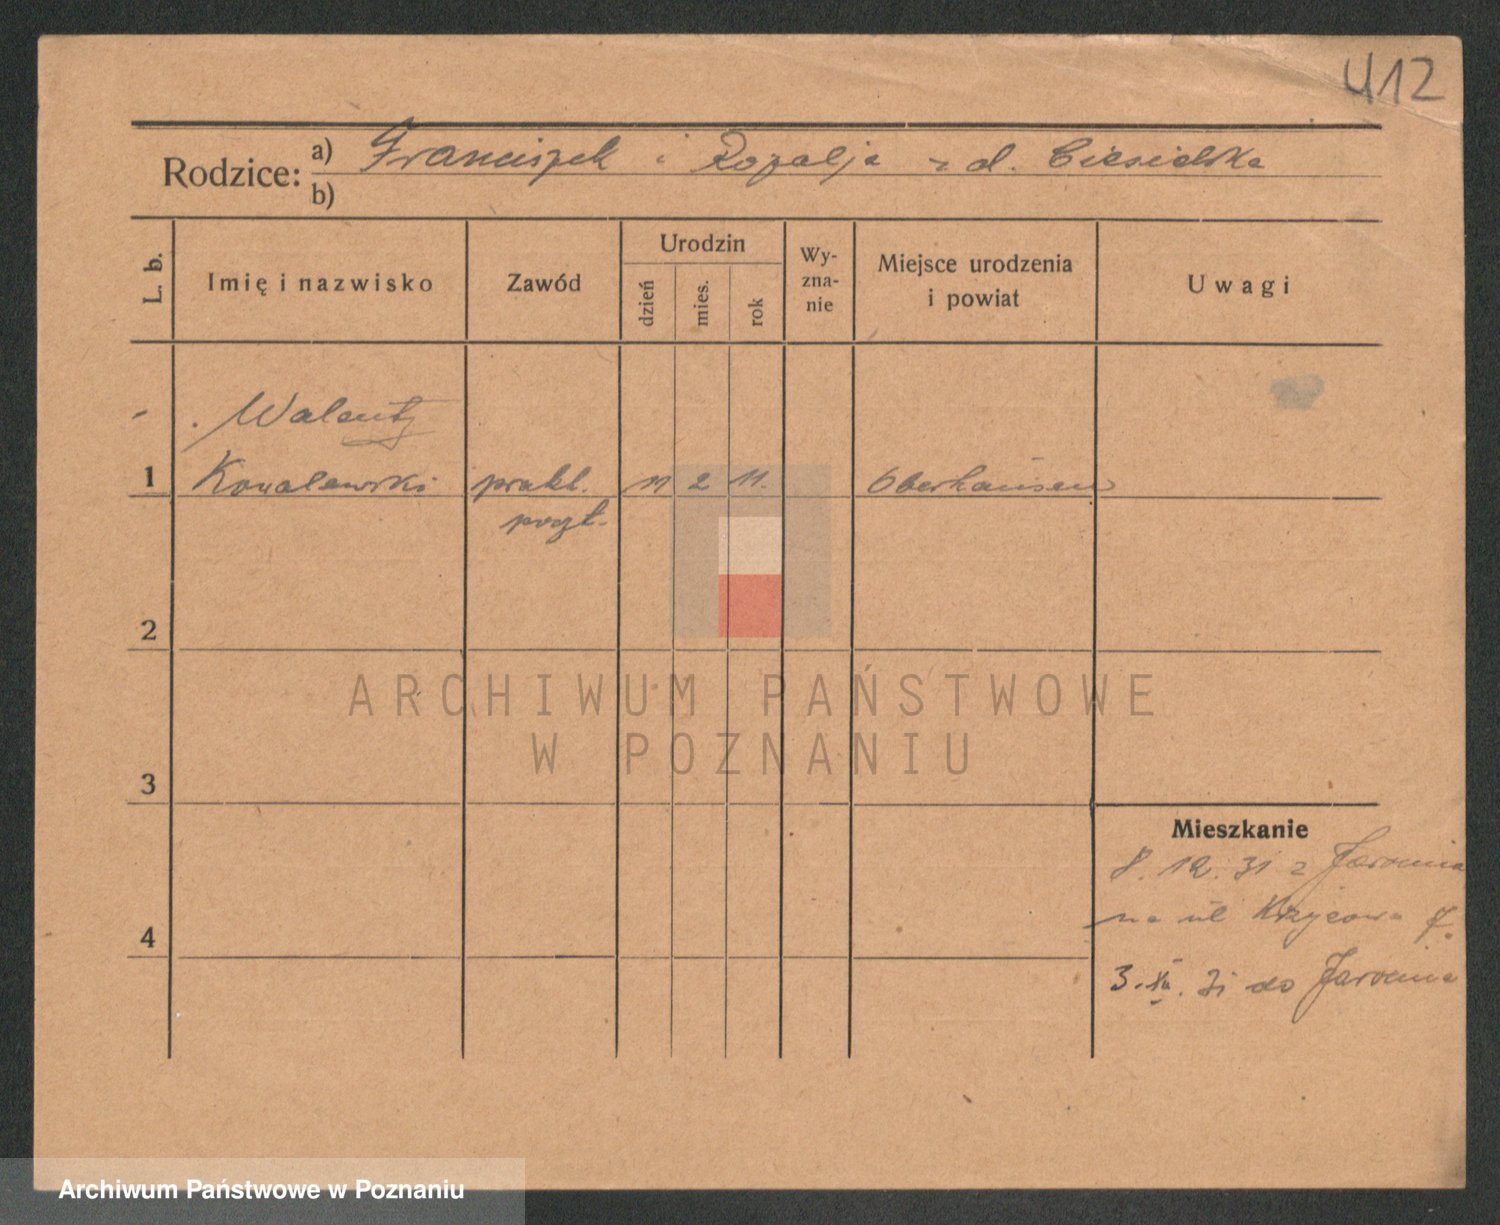 412
Rodzice: a) Franciszek i Rozalja z d. Ciesielska
b)
L. b.
Imię i nazwisko
Zawód
Urodzin
dzień
mies.
rok
Wy-
zna-
nie
Miejsce urodzenia
i powiat
Uwagi
Walenty
1 Kowalewski prakt. 11 2 11. Oberhausen
poczt.
2
ARCHIWUM PAŃSTWOWE
W POZNANIU
3
Mieszkanie
8. 12. 31 z Jarocina
na ul
4
3. XII. 31 do Jarocina
Archiwum Państwowe w Poznaniu